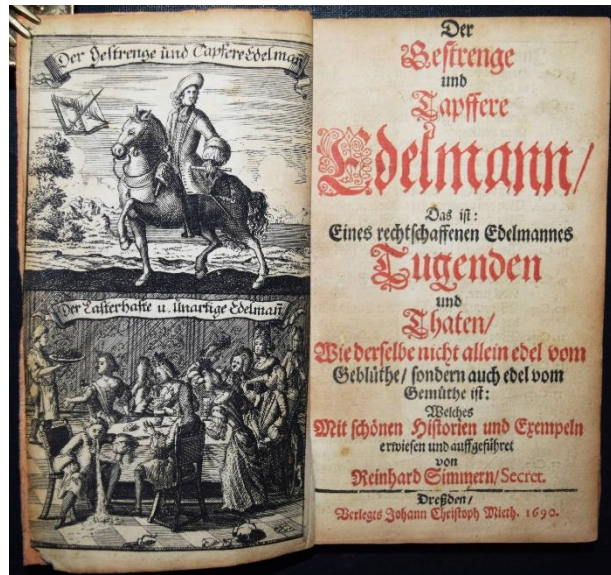 Der Gestrenge und Tapfere Edelman̄
Der Lasterhafte u. Unartige Edelman̄
Der
Gestrenge
und
Tapffere
Edelmann/
Das ist:
Eines rechtschaffenen Edelmannes
Tugenden
und
Thaten/
Wie derselbe nicht allein edel vom
Geblüthe/ sondern auch edel vom
Gemüthe ist:
Welches
Mit schönen Historien und Exempeln
erwiesen und auffgeführet
von
Reinhard Simmern/Secret.
Dreßden/
Verlegts Johann Christoph Mieth. 1690.